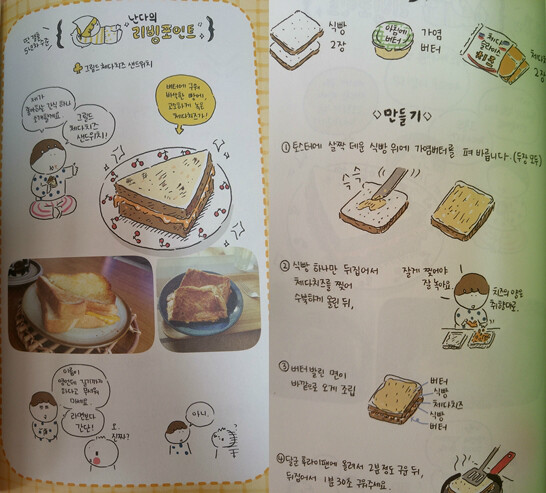 난다의
리빙포인트
그릴드 체다치즈 샌드위치
버터에 구워
바삭한 빵에,
고소하게 녹은
체다치즈가!
제가
좋아하는 간식 하나
소개할게요
그릴드
체다치즈
샌드위치!
이름이
라면보다
간단!
오,
진짜?
아니.
식빵
2장
가염
버터
체다
슬라이스
만들기
① 토스터에 살짝 데운 식빵 위에 가염버터를 펴 바릅니다. (두장 모두)
슥슥
② 식빵 하나만 뒤집어서
체다치즈를 찢어
수북하게 올린 뒤,
잘게 찢어야
잘 녹아요
치즈의 양은
취향대로.
③ 버터 발린 면이
바깥으로 오게 조립
버터
식빵
체다치즈
식빵
버터
④ 달군 후라이팬에 올려서 2분 정도 구운 뒤,
뒤집어서 1분 30초 구워주세요.